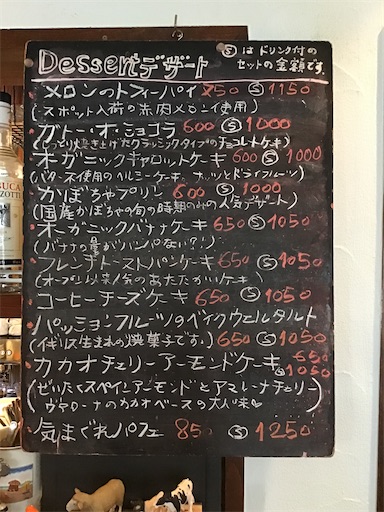 Dessertデザート
Ⓢはドリンク付の
セットの金額です。
メロンのトフィーパイ 750 Ⓢ 1150
(スポット入荷の赤肉メロン使用)
ガトー・オ・ショコラ 600 Ⓢ 1000
(しっとり焼き上げたクラシックタイプのチョコレートケーキ)
オーガニックキャロットケーキ 600 Ⓢ 1000
(バター不使用のヘルシーケーキ。ナッツとドライフルーツ)
かぼちゃプリン 600 Ⓢ 1000
(国産かぼちゃの旬の時期のみの人気デザート)
オーガニックバナナケーキ 650 Ⓢ 1050
(バナナの量がハンパない?!)
フレンチトーストパンケーキ 650 Ⓢ 1050
(オープン以来人気のあたたかいケーキ)
コーヒーチーズケーキ 650 Ⓢ 1050
パッションフルーツのベイクウェルタルト
(イギリス生まれの焼菓子です。) 650 Ⓢ 1050
カカオチェリーアーモンドケーキ 650
Ⓢ 1050
(ぜいたくスペインアーモンドとアマレーナチェリー)
ヴァローナのカカオベースの大人味♡
気まぐれパフェ 850 Ⓢ 1250